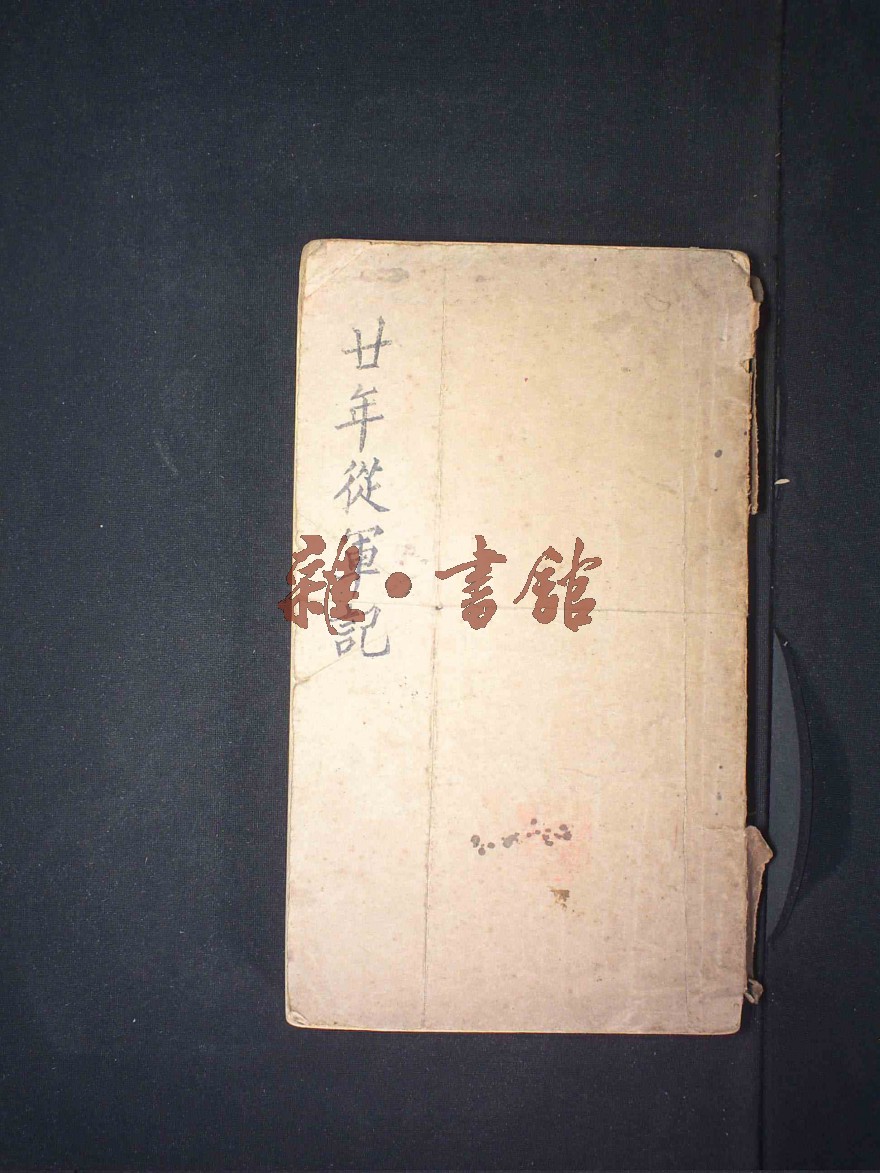 廿年從軍記
雜·書館